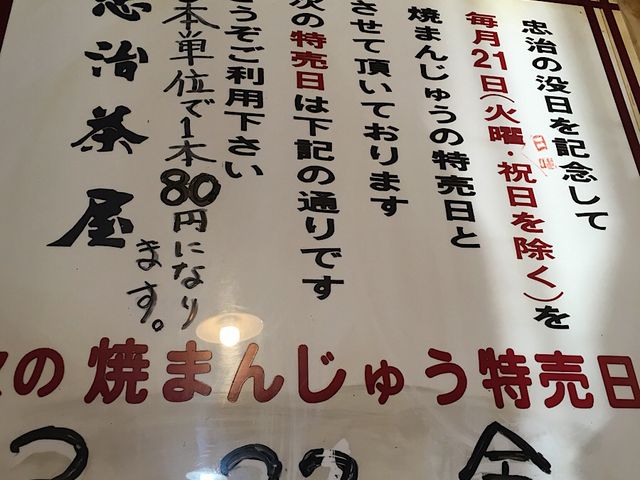 忠治の没日を記念して
毎月21日(火曜・祝日を除く)を
日曜
焼まんじゅうの特売日と
させて頂いております
次の特売日は下記の通りです
どうぞご利用下さい
本単位で1本80円になります。
忠治茶屋
の焼まんじゅう特売日